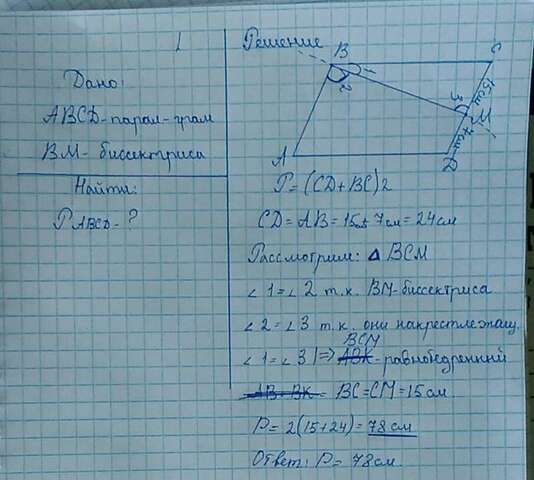 1
Дано:
ABCD - парал-грам
BM - биссектриса
Найти:
P ABCD - ?
Решение
B
C
2
15см
3
M
7см
A
D
P = (CD + BC) 2
CD = AB = 15см 7см = 24см
Рассмотрим: Δ BCM
∠ 1 = ∠ 2 т.к. BM - биссектриса
∠ 2 = ∠ 3 т.к. они накрестлежащ.
BCM
∠ 1 = ∠ 3 | => ABK - равнобедренный
AB = BK = BC = CM = 15 см.
P = 2(15 + 24) = 78 см
Ответ: P = 78 см.